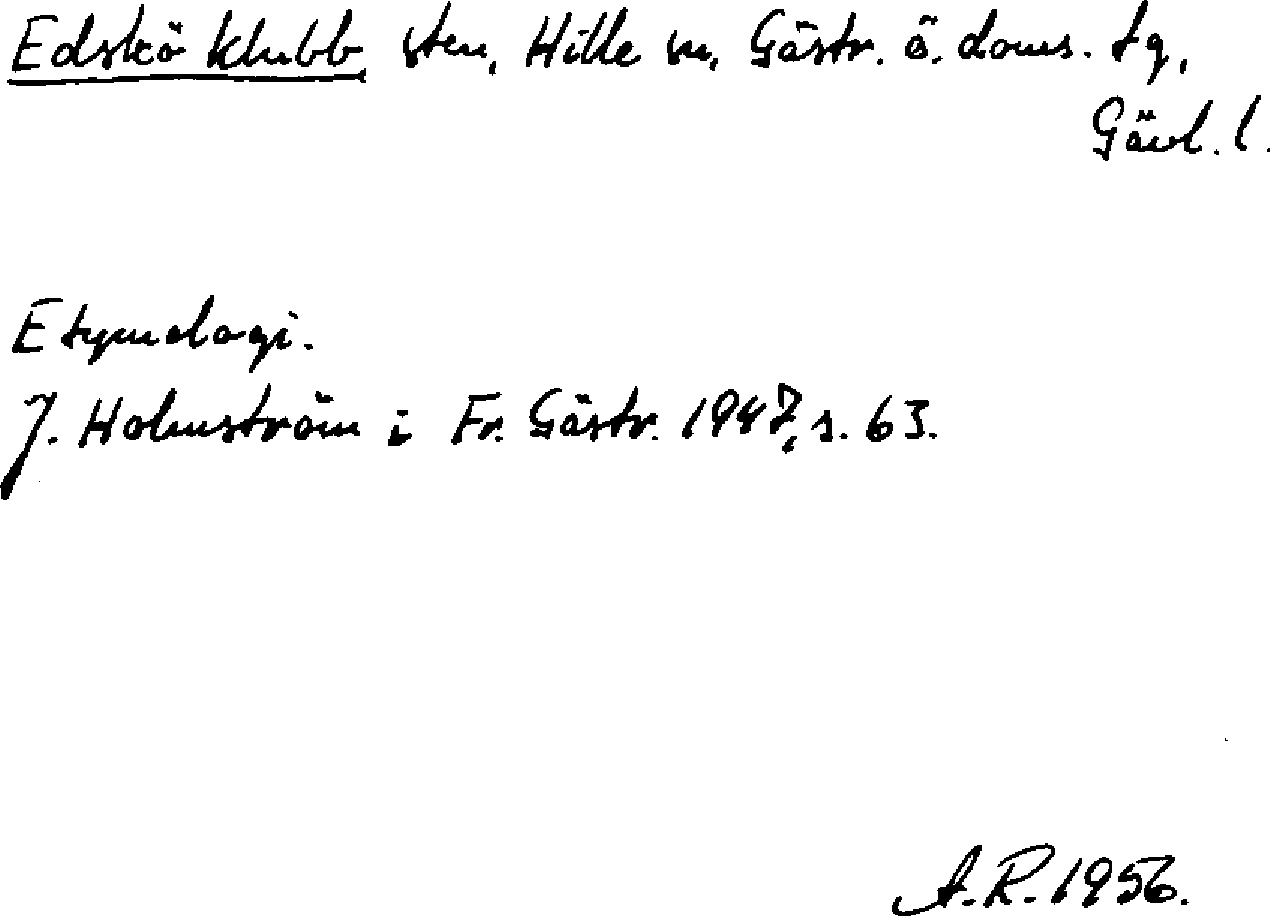 Edskö klubb, sten, Hille sn, Gästr. ö. doms. tg,
Gävl. l.
Etymologi.
J. Holmström i Fr. Gästr. 1947, s. 63.
A.R. 1956.